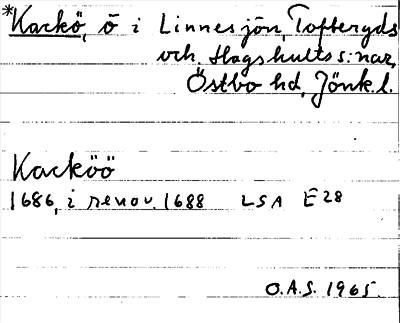 *Kackö, ö i Linnesjön, Toftaryds
och Hagshults s:nar,
Östbo hd, Jönk.l.
Kacköö
1686, i renov. 1688 LSA E28
O.A.S. 1965.